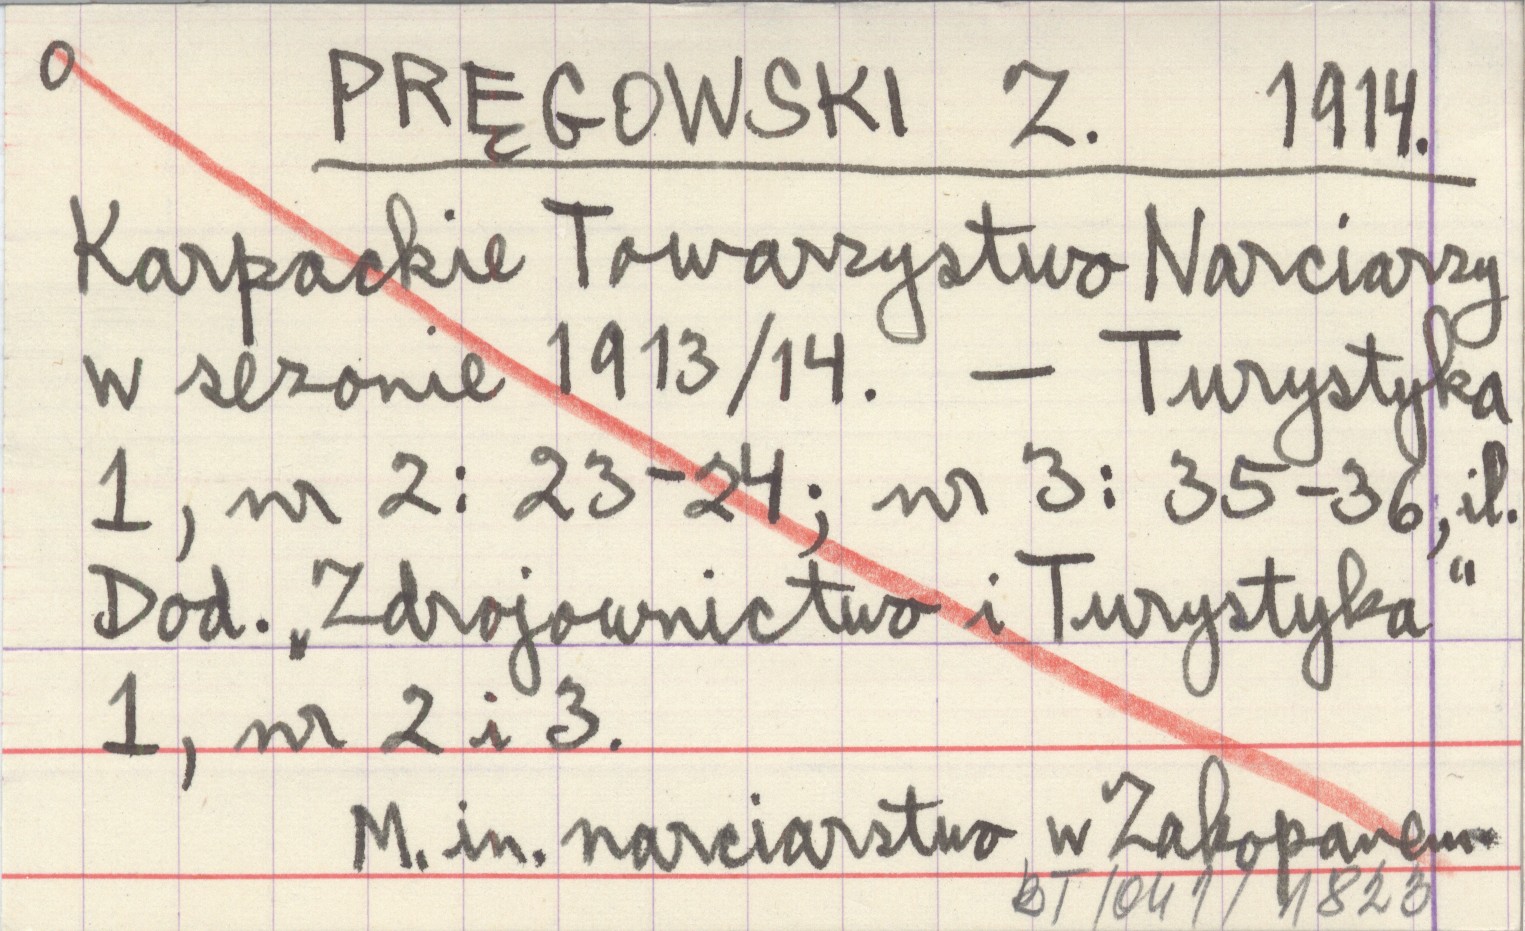 o PRĘGOWSKI Z. 1914.
Karpackie Towarzystwo Narciarzy
w sezonie 1913/14. – Turystyka
1, nr 2: 23-24; nr 3: 35-36, il.
Dod. „Zdrojownictwo i Turystyka"
1, nr 2 i 3.
M. in. narciarstwo w Zakopanem.
BT/041/1823